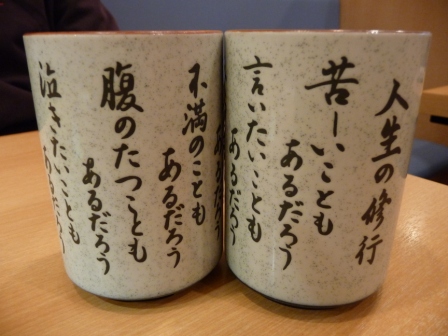 人生の修行
苦しいことも
あるだろう
言いたいことも
あるだろう
不満のことも
あるだろう
腹のたつことも
あるだろう
泣きたいことも
あるだろう